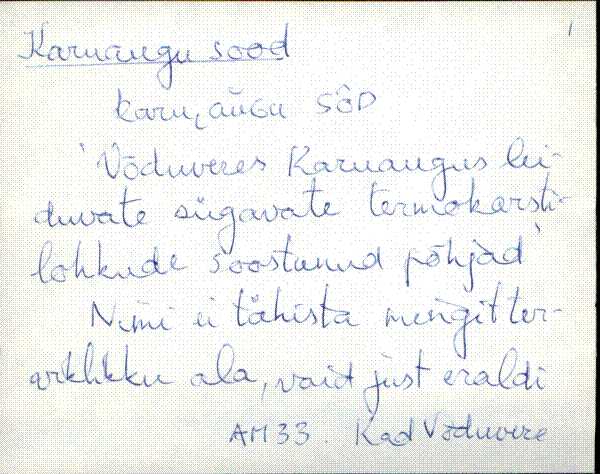 1
Karuaugu sood
karu, aùGu SÒD
'Võduveres Karuaugus lei-
duvate sügavate termokarsti-
lohkude soostunud põhjad'
Nimi ei tähista mingit ter-
viklikku ala, vaid just eraldi
AM33. Kad Võduvere